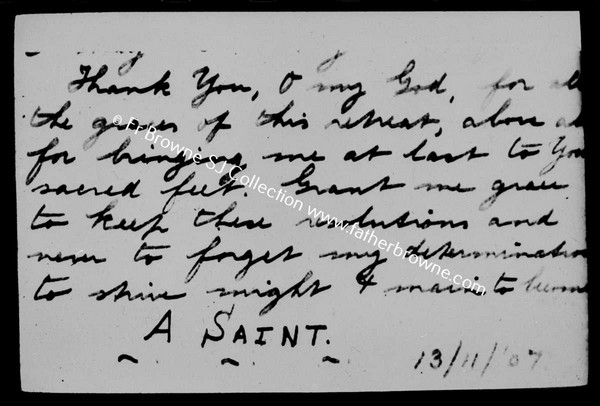 Thank You, O my God, for all
the graces of this retreat, above all
for bringing me at last to Your
sacred feet. Grant me grace
to keep these resolutions and
never to forget my determination
to strive might & main to become
A SAINT.
13/11/'07
© Fr Browne SJ Collection www.fatherbrowne.com